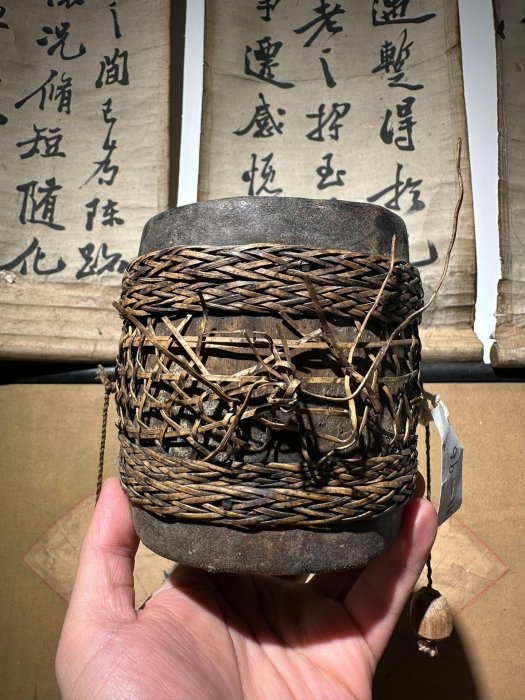 遇暫得於
老之將至
事遷感慨
之間已為陳跡
況脩短隨化